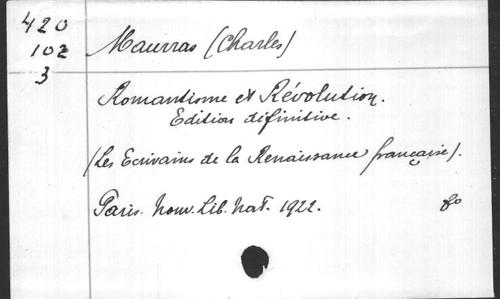 420
102
3
Maurras (Charles)
Romantisme et Révolution.
Edition définitive.
(Les Ecrivains de la Renaissance française).
Paris. Nouv. Lib. Nat. 1922.